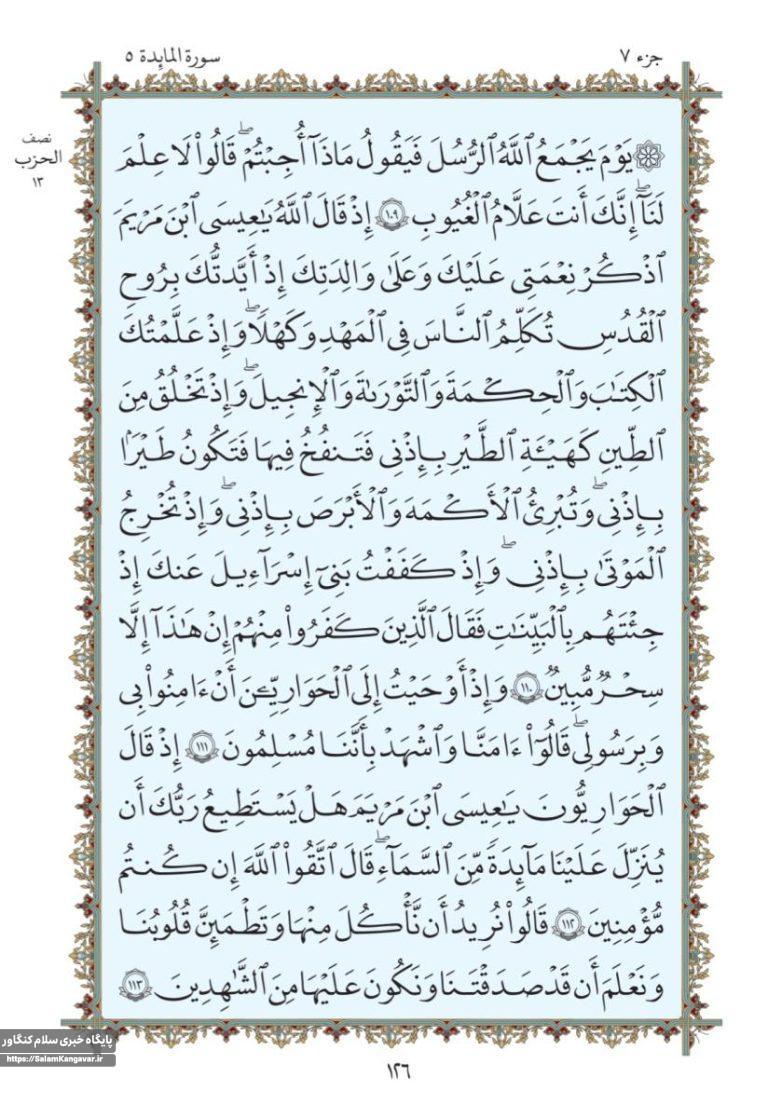 جزء ٧
سورة المائدة ٥
نصف
الحزب
١٣
يَوْمَ يَجْمَعُ ٱللَّهُ ٱلرُّسُلَ فَيَقُولُ مَاذَآ أُجِبْتُمْ ۖ قَالُوا۟ لَا عِلْمَ
لَنَآ ۖ إِنَّكَ أَنتَ عَلَّامُ ٱلْغُيُوبِ ١٠٩ إِذْ قَالَ ٱللَّهُ يَٰعِيسَى ٱبْنَ مَرْيَمَ
ٱذْكُرْ نِعْمَتِى عَلَيْكَ وَعَلَىٰ وَالِدَتِكَ إِذْ أَيَّدتُّكَ بِرُوحِ
ٱلْقُدُسِ تُكَلِّمُ ٱلنَّاسَ فِى ٱلْمَهْدِ وَكَهْلًا ۖ وَإِذْ عَلَّمْتُكَ
ٱلْكِتَٰبَ وَٱلْحِكْمَةَ وَٱلتَّوْرَىٰةَ وَٱلْإِنجِيلَ ۖ وَإِذْ تَخْلُقُ مِنَ
ٱلطِّينِ كَهَيْـَٔةِ ٱلطَّيْرِ بِإِذْنِى فَتَنفُخُ فِيهَا فَتَكُونُ طَيْرًۢا
بِإِذْنِى ۖ وَتُبْرِئُ ٱلْأَكْمَهَ وَٱلْأَبْرَصَ بِإِذْنِى ۖ وَإِذْ تُخْرِجُ
ٱلْمَوْتَىٰ بِإِذْنِى ۖ وَإِذْ كَفَفْتُ بَنِىٓ إِسْرَآءِيلَ عَنكَ إِذْ
جِئْتَهُم بِٱلْبَيِّنَٰتِ فَقَالَ ٱلَّذِينَ كَفَرُوا۟ مِنْهُمْ إِنْ هَٰذَآ إِلَّا
سِحْرٌ مُّبِينٌ ١١٠ وَإِذْ أَوْحَيْتُ إِلَى ٱلْحَوَارِيِّـۧنَ أَنْ ءَامِنُوا۟ بِى
وَبِرَسُولِى ۖ قَالُوٓا۟ ءَامَنَّا وَٱشْهَدْ بِأَنَّنَا مُسْلِمُونَ ١١١ إِذْ قَالَ
ٱلْحَوَارِيُّونَ يَٰعِيسَى ٱبْنَ مَرْيَمَ هَلْ يَسْتَطِيعُ رَبُّكَ أَن
يُنَزِّلَ عَلَيْنَا مَآئِدَةً مِّنَ ٱلسَّمَآءِ ۖ قَالَ ٱتَّقُوا۟ ٱللَّهَ إِن كُنتُم
مُّؤْمِنِينَ ١١٢ قَالُوا۟ نُرِيدُ أَن نَّأْكُلَ مِنْهَا وَتَطْمَئِنَّ قُلُوبُنَا
وَنَعْلَمَ أَن قَدْ صَدَقْتَنَا وَنَكُونَ عَلَيْهَا مِنَ ٱلشَّٰهِدِينَ ١١٣
پایگاه خبری سلام کنگاور
https://SalamKangavar.ir
١٢٦